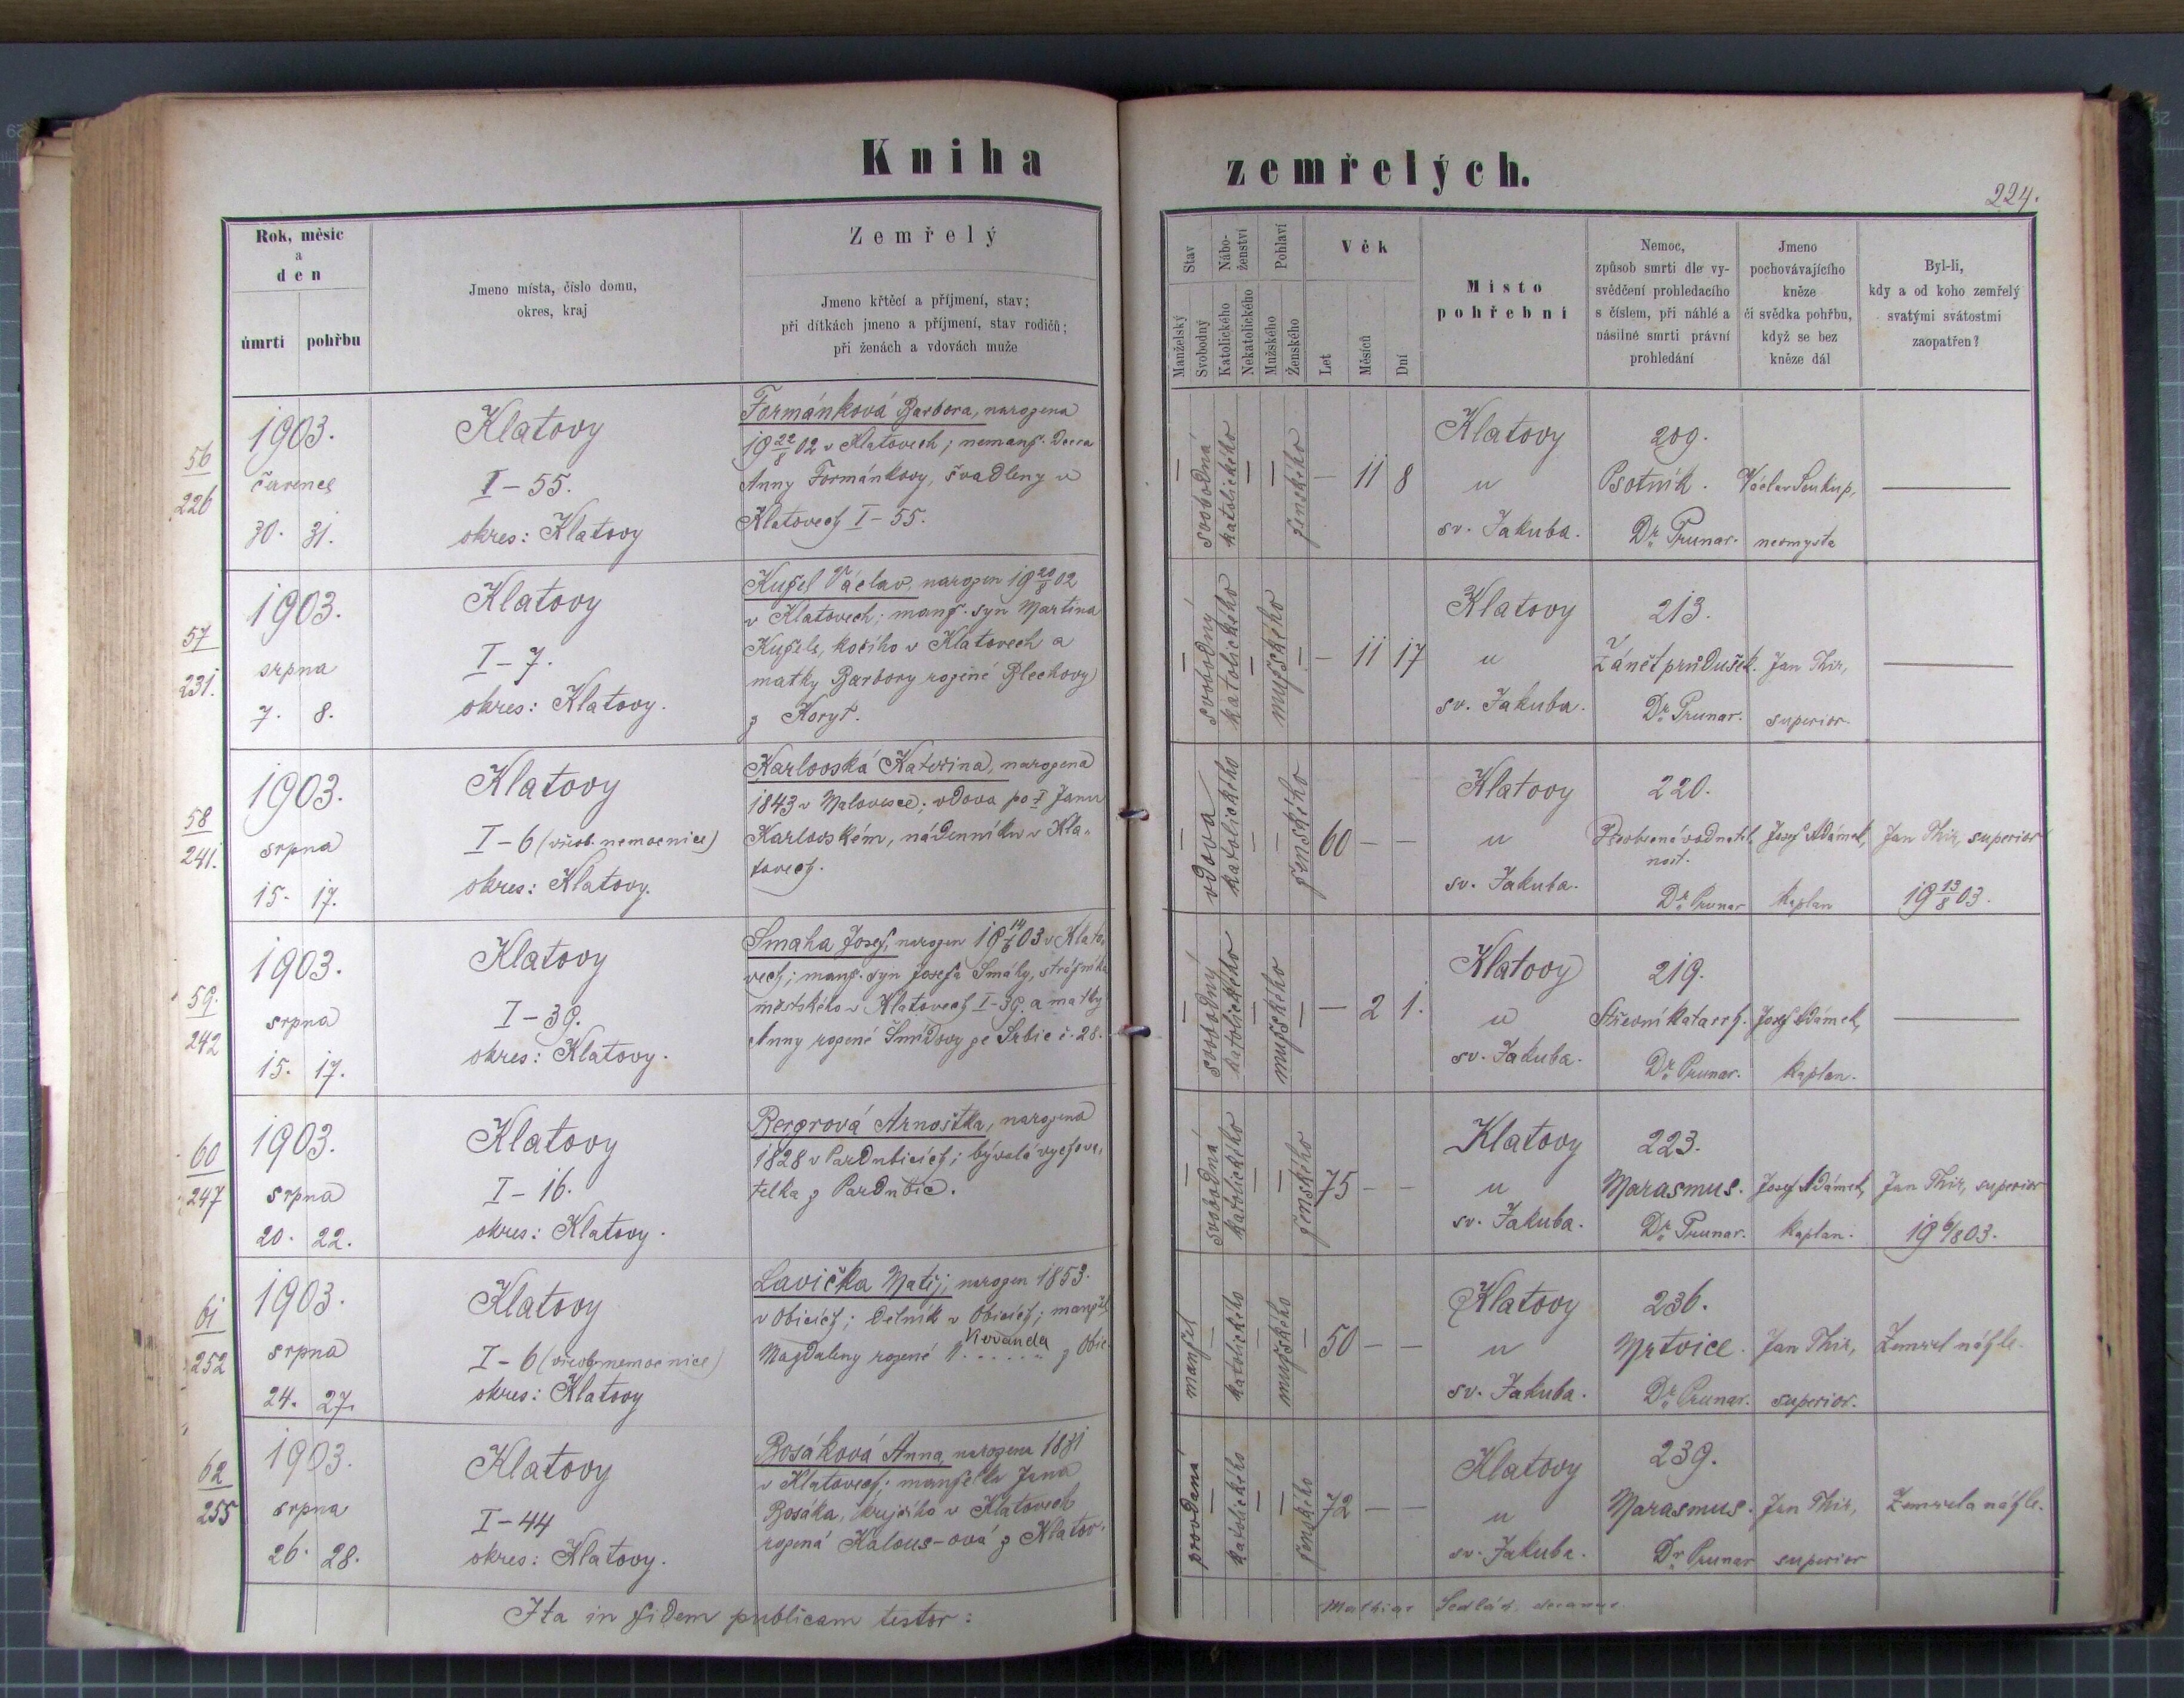 Kniha zemřelých.
224.
Rok, měsíc
a
den
úmrtí pohřbu
Jmeno místa, číslo domu,
okres, kraj
Zemřelý
Jmeno křtěcí a příjmení, stav;
při dítkách jmeno a příjmení, stav rodičů;
při ženách a vdovách muže
Stav
Manželský
Svobodný
Nábo-
ženství
Katolického
Nekatolického
Pohlaví
Mužského
Ženského
Věk
Let
Měsíců
Dní
Místo
pohřební
Nemoc,
způsob smrti dle vy-
svědčení prohledacího
s číslem, při náhlé a
násilné smrti právní
prohledání
Jmeno
pochovávajícího
kněze
čí svědka pohřbu,
když se bez
kněze dál
Byl-li,
kdy a od koho zemřelý
svatými svátostmi
zaopatřen?
56
226
1903.
červenec
30. 31.
Klatovy
I-55.
okres: Klatovy
Formánková Barbora, narozena
19 22/8 02 v Klatovech; nemanž. dcera
Anny Formánkovy, švadleny v
Klatovech I-55.
—
svobodná
katolického
—
—
ženského
— 11 8
Klatovy
u
sv. Jakuba.
209.
Psotník.
Dr. Prunar.
Václav Soukup,
neomysta
—
57
231.
1903.
srpna
7. 8.
Klatovy
I-7.
okres: Klatovy.
Kužel Václav, narozen 19 20/8 02
v Klatovech; manž. syn Martina
Kužele, kočího v Klatovech a
matky Barbory rozené Blechovy
z Koryt.
—
svobodný
katolického
—
mužského
—
— 11 17
Klatovy
u
sv. Jakuba.
213.
Zánět průdušek.
Dr. Prunar.
Jan Thir,
superior.
—
58
241.
1903.
srpna
15. 17.
Klatovy
I-6 (všeob. nemocnice)
okres: Klatovy.
Karlovská Kateřina, narozena
1843 v Malovesce; vdova po † Janu
Karlovském, nádenníku v Kla-
tovech.
—
vdova
katolického
—
—
ženského
60 — —
Klatovy
u
sv. Jakuba.
220.
Všeobecná vodnatel-
nost.
Dr. Prunar
Josef Adámek,
kaplan
Jan Thir, superior
19 13/8 03.
59.
242
1903.
srpna
15. 17.
Klatovy
I-39.
okres: Klatovy.
Smaha Josef, narozen 19 14/6 03 v Klato-
vech; manž. syn Josefa Smahy, strážníka
městského v Klatovech I-39. a matky
Anny rozené ze Srbic č. 28.
—
svobodný
katolického
—
mužského
—
— 2 1.
Klatovy
u
sv. Jakuba.
219.
Střevní katarrh.
Dr. Prunar.
Josef Adámek,
kaplan.
—
60
247
1903.
srpna
20. 22.
Klatovy
I-16.
okres: Klatovy.
Bergrová Arnoštka, narozena
1828 v Pardubicích; bývalá vychova-
telka z Pardubic.
—
svobodná
katolického
—
—
ženského
75 — —
Klatovy
u
sv. Jakuba.
223.
Marasmus.
Dr. Prunar.
Josef Adámek,
kaplan.
Jan Thir, superior
19 6/8 03.
61
252
1903.
srpna
24. 27.
Klatovy
I-6 (všeob. nemocnice)
okres: Klatovy
Lavička Matěj, narozen 1853.
v Obicích; dělník v Obicích; manžel
Magdaleny rozené Kovanda z Obic
manžel
—
katolického
—
mužského
—
50 — —
Klatovy
u
sv. Jakuba.
236.
Mrtvice.
Dr. Prunar.
Jan Thir,
superior.
Zemřel náhle.
62
255
1903.
srpna
26. 28.
Klatovy
I-44
okres: Klatovy.
Bosáková Anna, narozena
v Klatovech; manželka Jana
Bosáka, krejčího v Klatovech
rozená Kalous-ová z Klatov.
provdaná
—
katolického
—
—
ženského
72 — —
Klatovy
u
sv. Jakuba.
239.
Marasmus.
Dr. Prunar
Jan Thir,
superior
Zemřela náhle.
Ita in fidem publicam testor:
Mathias Sedlák